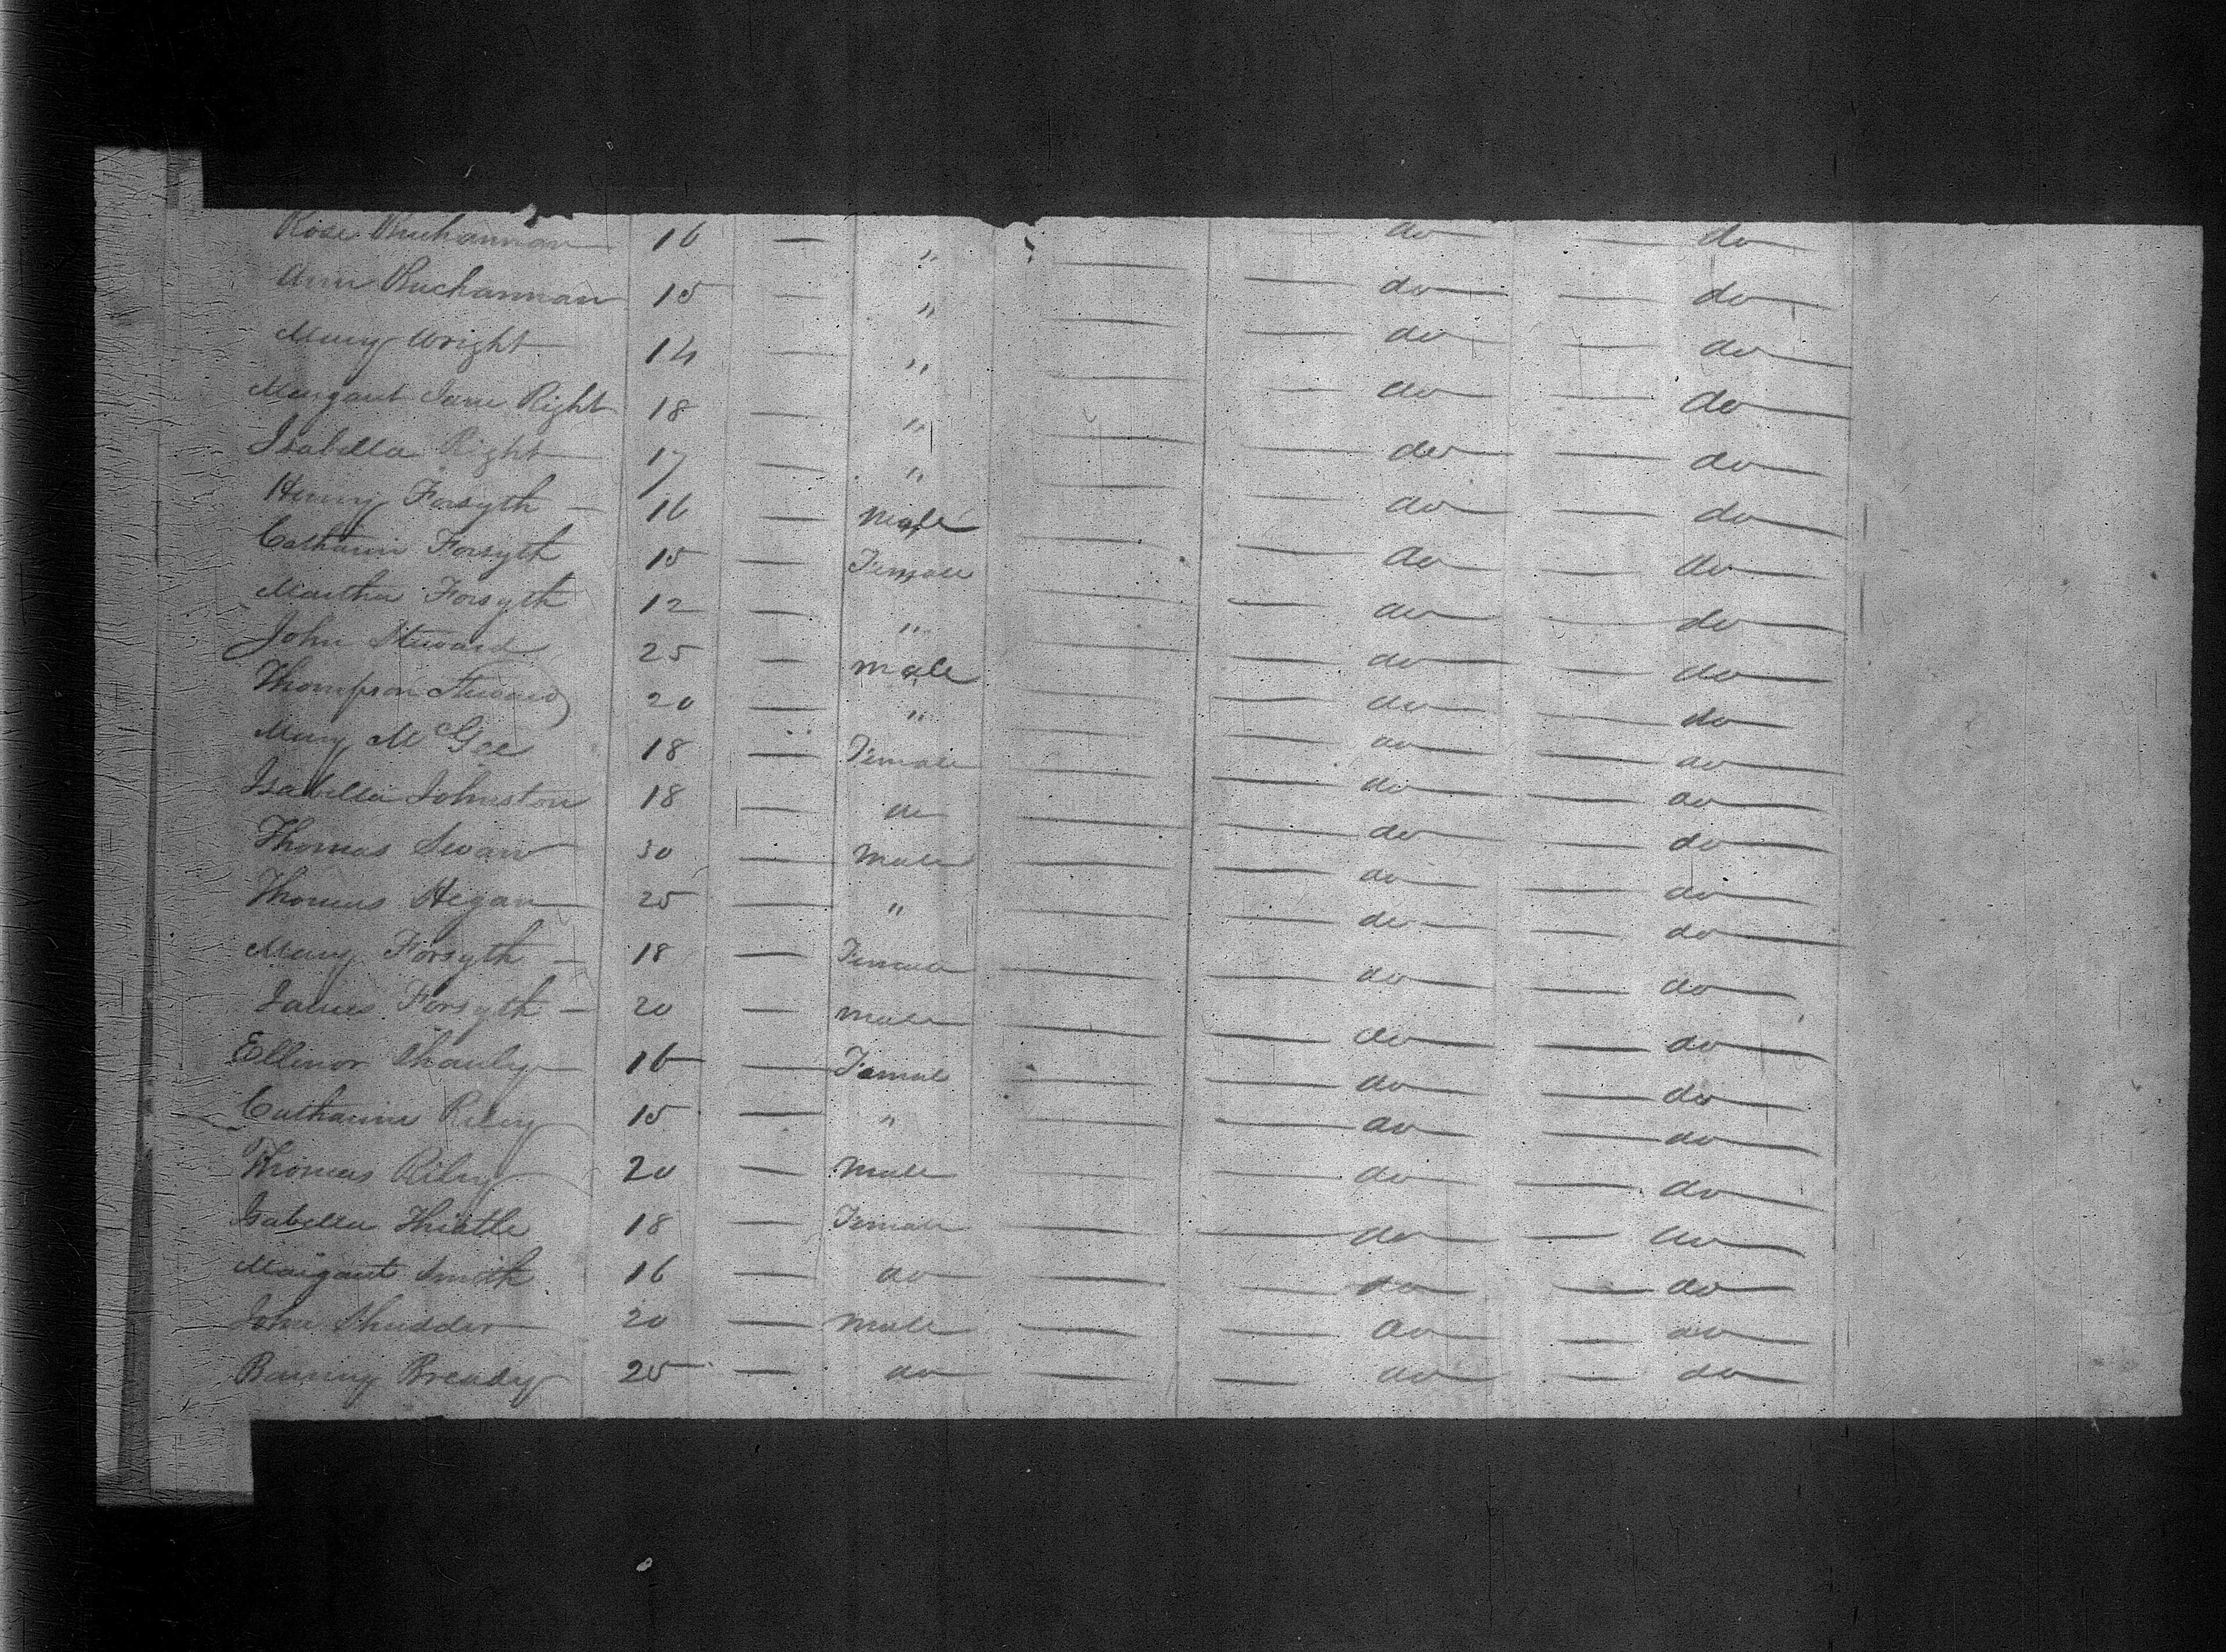 Rose Buchannan 16 — " — do — do
Ann Buchannan 15 — " — do — do
Mary Wright 14 — " — do — do
Margaret Jane Right 18 — " — do — do
Isabella Right 17 — " — do — do
Henry Forsyth — 16 — Male — do — do
Catharin Forsyth 15 — Female — do — do
Martha Forsyth 12 — " — do — do
John Steward 25 — Male — do — do
Thompson Steward 20 — " — do — do
Mary McGee 18 — Female — do — do
Isabella Johnston 18 — do — do — do
Thomas Swan 30 — Male — do — do
Thomas Hegan 25 — " — do — do
Mary Forsyth — 18 — Female — do — do
James Forsyth — 20 — Male — do — do
Ellenor 16 — Female — do — do
Catharine Riley 15 — " — do — do
Thomas Riley 20 — Male — do — do
Isabella Thistle 18 — Female — do — do
Margaret Smith 16 — do — do — do
John 20 — Male — do — do
Barney Bready 25 — do — do — do